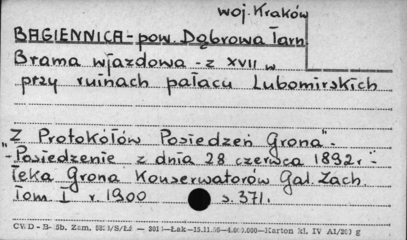 woj. Kraków
BAGIENNICA - pow. Dąbrowa Tarn
Brama wjazdowa - z XVII w
przy ruinach pałacu Lubomirskich
"Z Protokółów Posiedzeń Grona".
- Posiedzenie z dnia 28 czerwca 1892 r -
Teka Grona Konserwatorów Gal. Zach.
Tom I r 1900 s. 371.
CWD - B- 5b. Zam.
Łak
Karton kl. IV A1/200 g